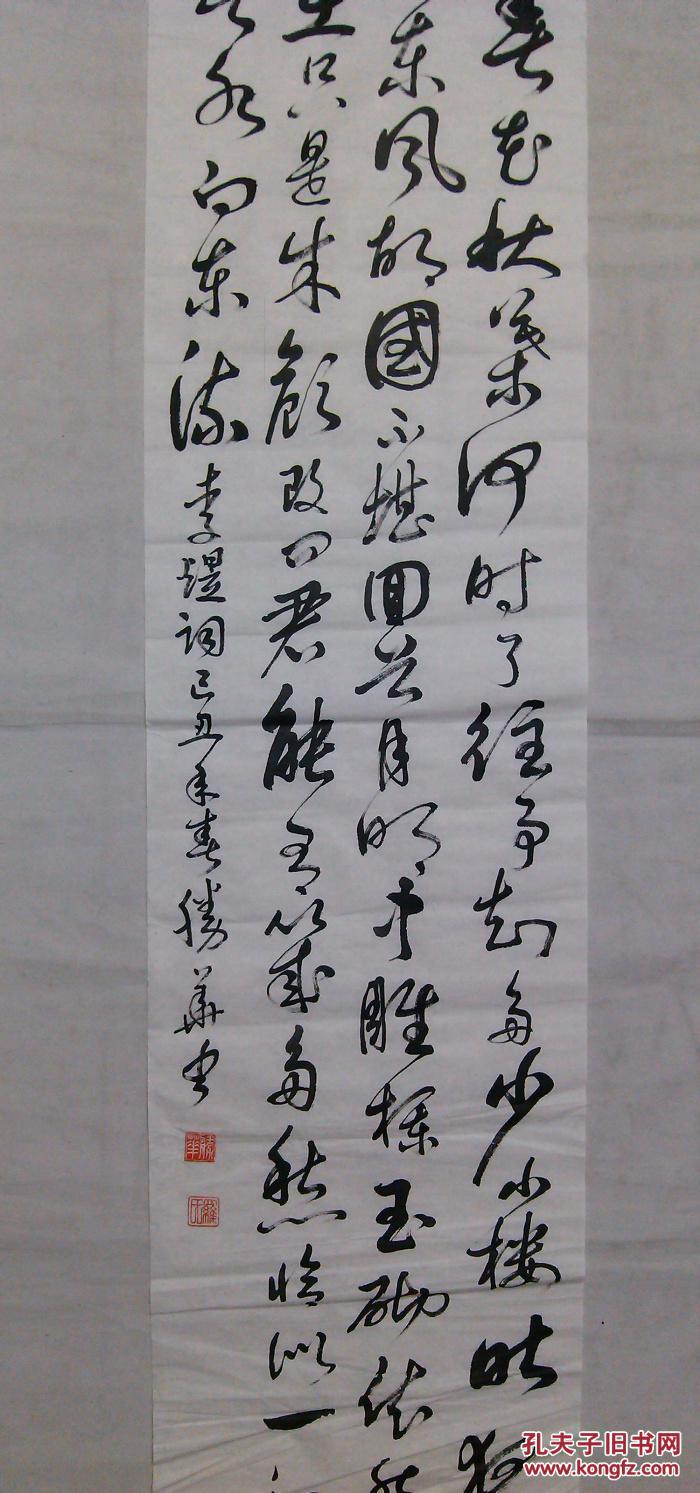 春花秋葉何时了往事知多少小楼昨夜
东风故國不堪回首月明中雕栏玉砌依然
在只是朱颜改问君能有幾多愁恰似一江
春水向东流 李煜词己丑年春勝華书
勝華
孔夫子旧书网
www.kongfz.com